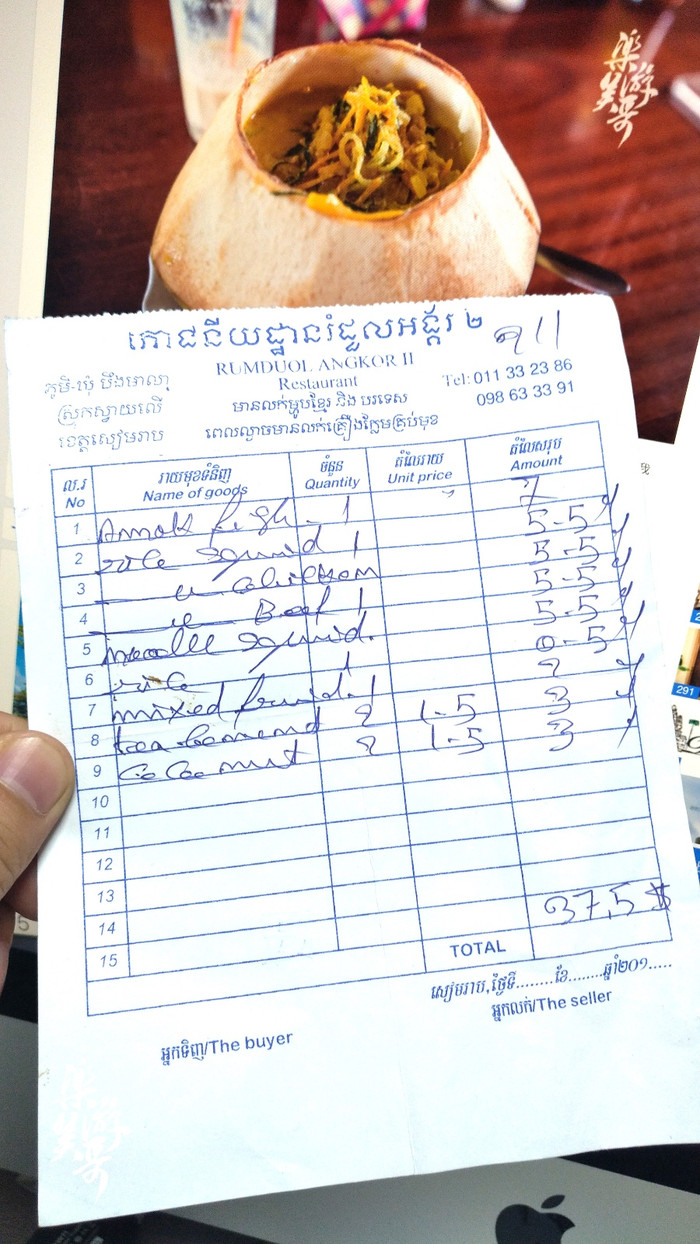 乐游
美哥
ភោជនីយដ្ឋានរំដួលអង្គរ ២
RUMDUOL ANGKOR II
Restaurant
ភូមិ-ឃុំ បឹងមាលា
ស្រុកស្វាយលើ
ខេត្តសៀមរាប
មានលក់ម្ហូបខ្មែរ និង បរទេស
ពេលល្ងាចមានលក់គ្រឿងក្លែមគ្រប់មុខ
Tel: 011 33 23 86
098 63 33 91
ល.រ No រាយមុខទំនិញ Name of goods ចំនួន Quantity តំលៃរាយ Unit price តំលៃសរុប Amount
1 Amok fish - 1 7
2 rice squid 1 5-5
3 " chicken 5-5
4 " Beef 1 5-5
5 noodle squid. 5-5
6 rice 1 0-5
7 mixed fruid-1 2
8 tea 2 1-5 3
9 Coconut 2 1-5 3
10
11
12
13
14 37,5 $
15 TOTAL
សៀមរាប,ថ្ងៃទី........ខែ........ឆ្នាំ២០១.....
អ្នកទិញ/The buyer
អ្នកលក់/The seller
291
乐游
美哥